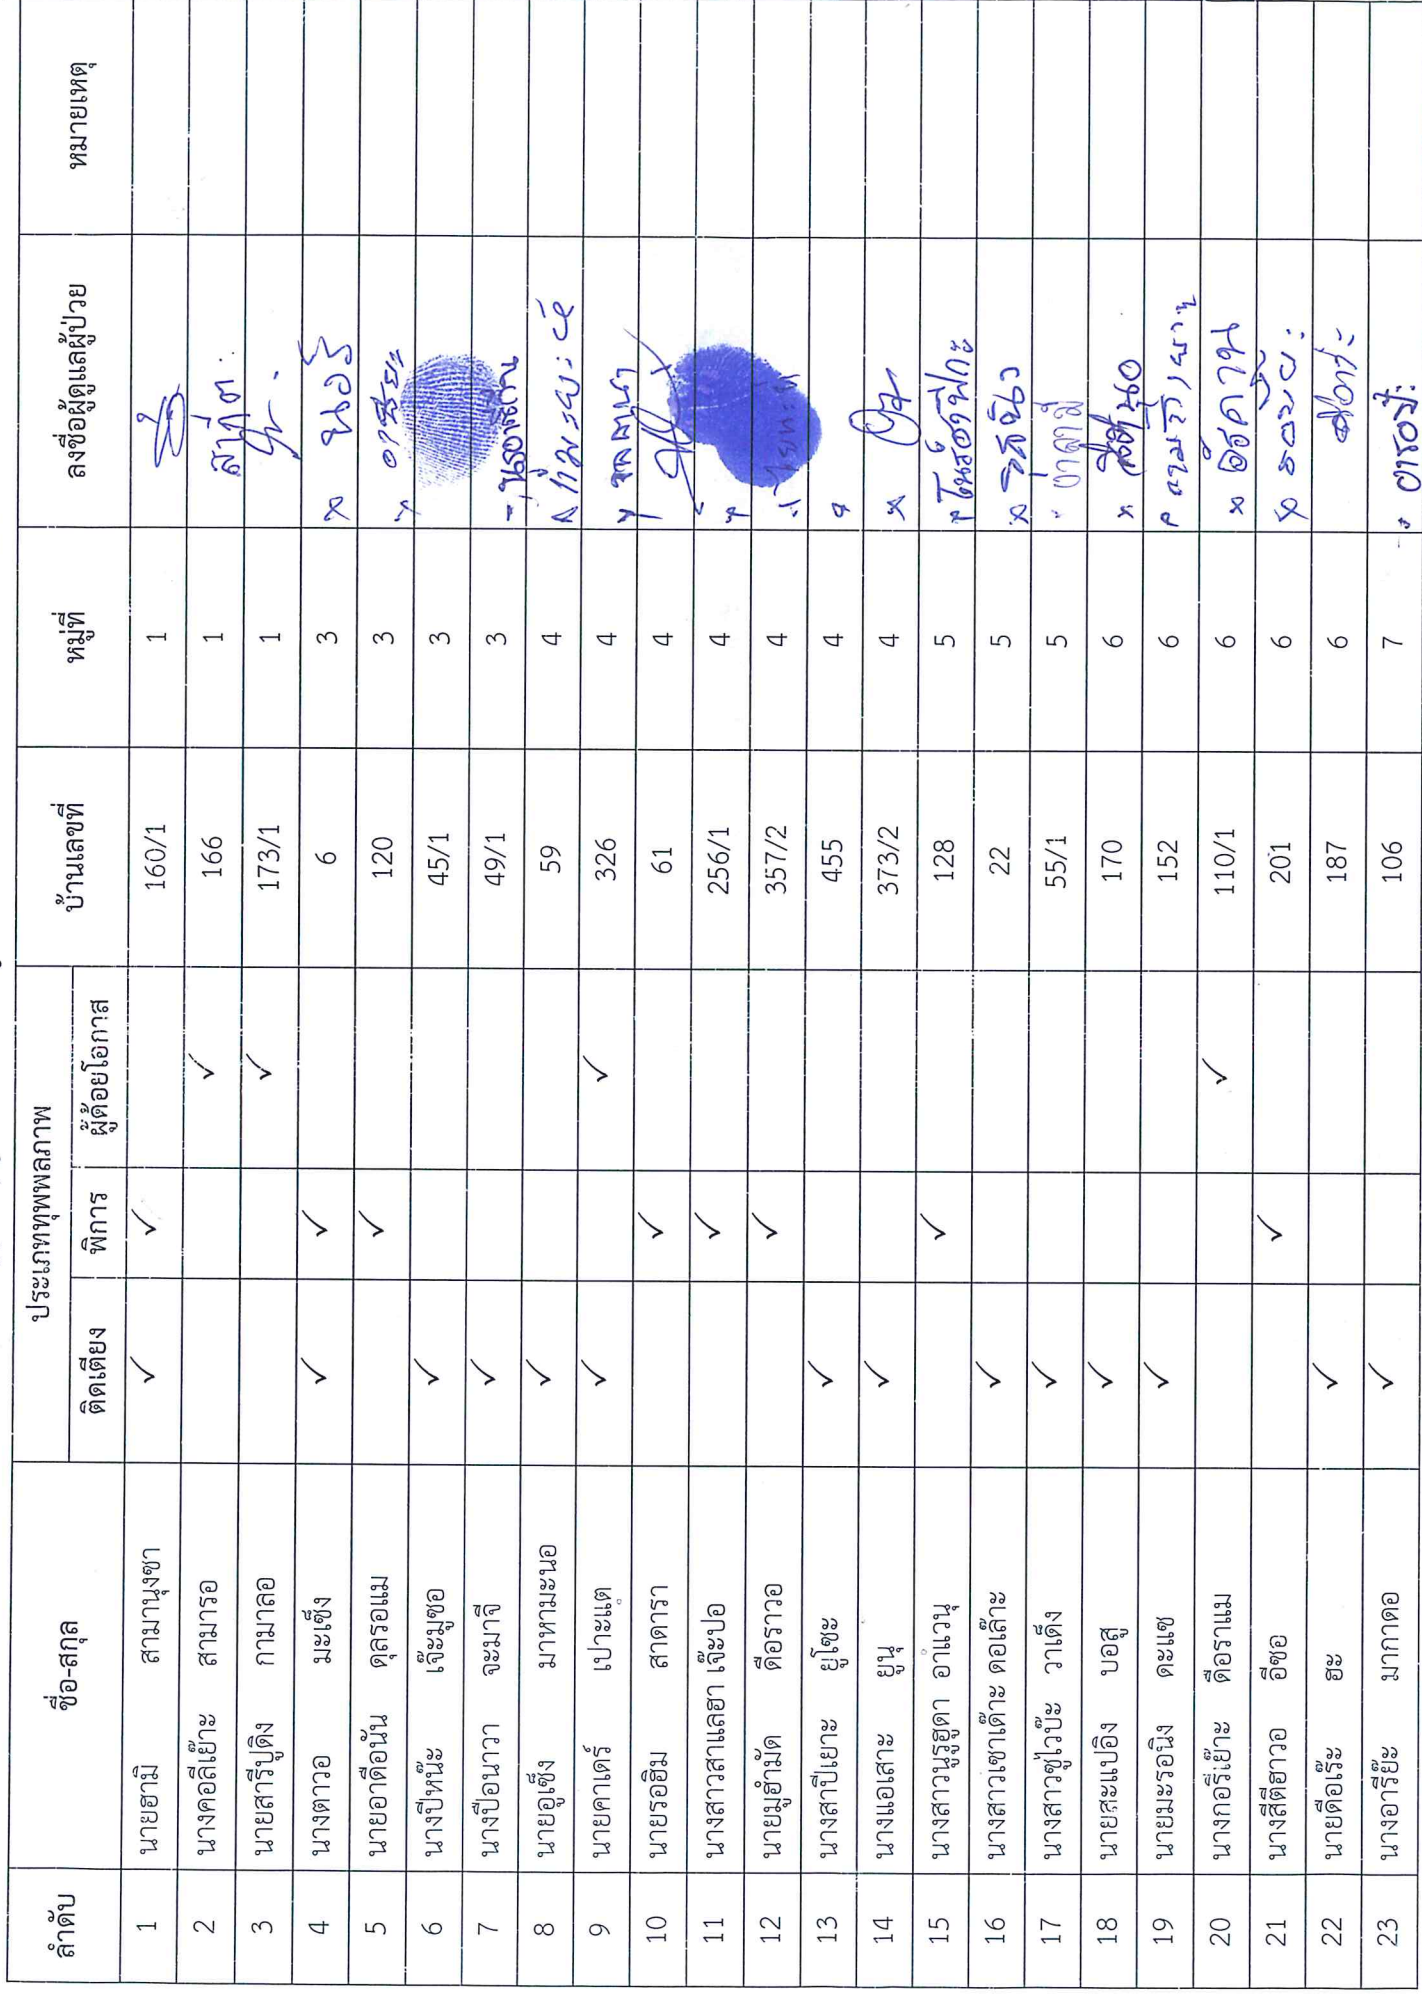 ลำดับ ชื่อ-สกุล ประเภททุพพลภาพ บ้านเลขที่ หมู่ที่ ลงชื่อผู้ดูแลผู้ป่วย หมายเหตุ
ติดเตียง พิการ ผู้ด้อยโอกาส
1 นายฮามิ สามานุงซา ✓ ✓ 160/1 1
2 นางคอลีเย๊าะ สามารอ ✓ 166 1
3 นายสารีปูดิง กามาลอ ✓ 173/1 1
4 นางตาวอ มะเซ็ง ✓ ✓ 6 3 x นอรี
5 นายอาดือนัน ดุลรอแม ✓ 120 3
6 นางปีหน๊ะ เจ๊ะมูซอ ✓ 45/1 3
7 นางปือนาวา จะมาจี ✓ 49/1 3
8 นายอูเซ็ง มาหามะนอ ✓ 59 4
9 นายคาเดร์ เปาะแต ✓ ✓ 326 4
10 นายรออิม สาดารา ✓ 61 4
11 นางสาวสาแลฮา เจ๊ะปอ ✓ 256/1 4
12 นายมูฮำมัด ดือราวอ ✓ 357/2 4
13 นางสาปีเยาะ ยูโซะ ✓ 455 4
14 นางแอเสาะ ยูนุ ✓ 373/2 4
15 นางสาวนูรฮูดา อาแวนุ ✓ 128 5
16 นางสาวเซาเด๊าะ ดอเล๊าะ ✓ 22 5
17 นางสาวซูไวบ๊ะ วาเด็ง ✓ 55/1 5
18 นายสะแปอิง บอสู ✓ 170 6
19 นายมะรอนิง ดะแซ ✓ 152 6
20 นางกอรีเย๊าะ ดือราแม ✓ 110/1 6
21 นางสีตีฮาวอ อีซอ ✓ 201 6
22 นายดือเร๊ะ ฮะ ✓ 187 6
23 นางอารีย๊ะ มากาดอ ✓ 106 7